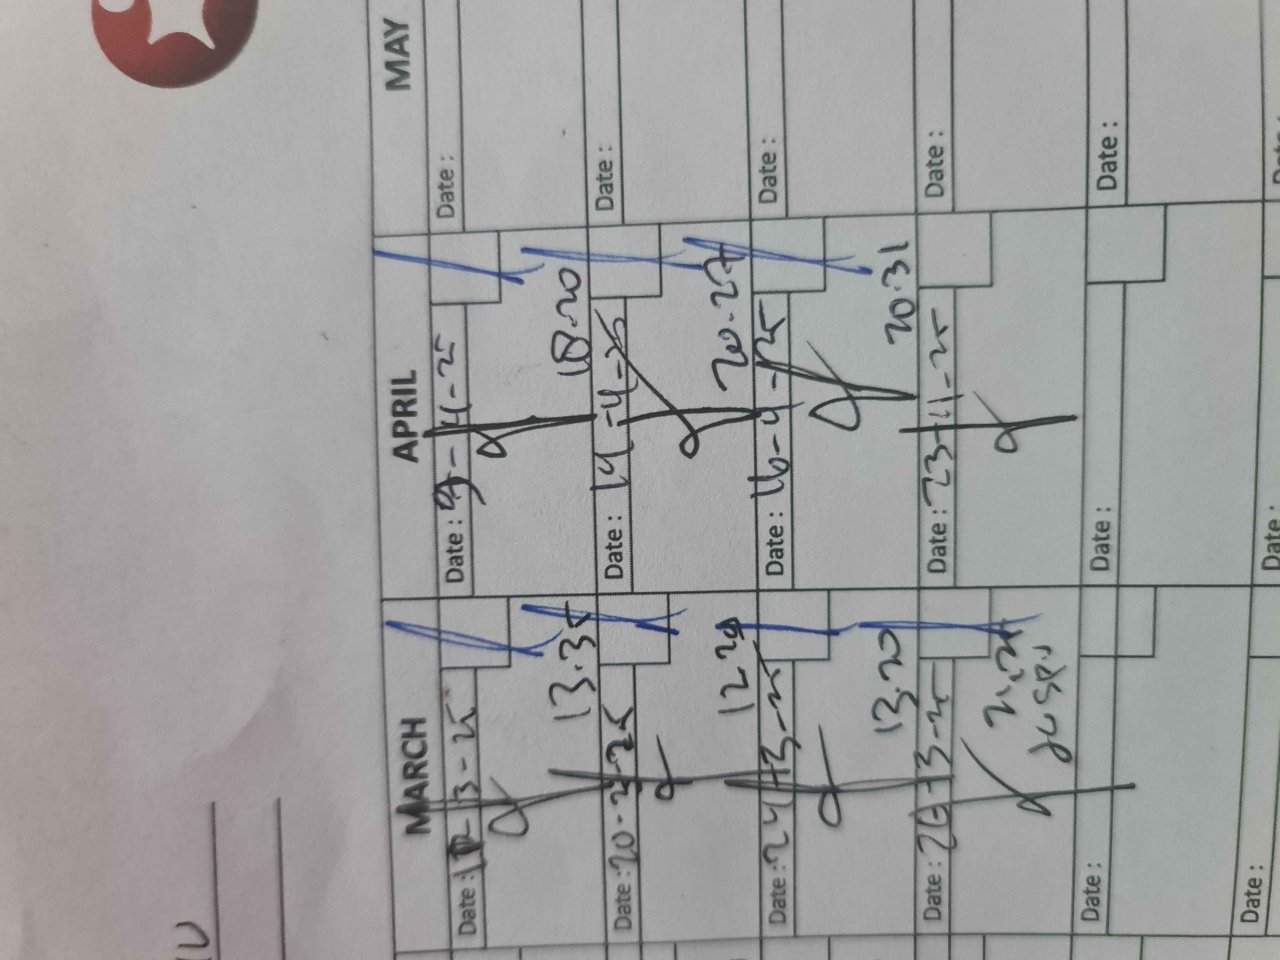 MARCH
Date :
13.35
Date : 20-3-25
12 29
Date : 24-3-25
13.20
Date : 26-3-25
Date :
Date :
APRIL
Date : 9-4-25
18.20
Date : 14-4-25
20.27
Date : 16-4-25
20.31
Date : 23-4-25
Date :
Date :
MAY
Date :
Date :
Date :
Date :
Date :